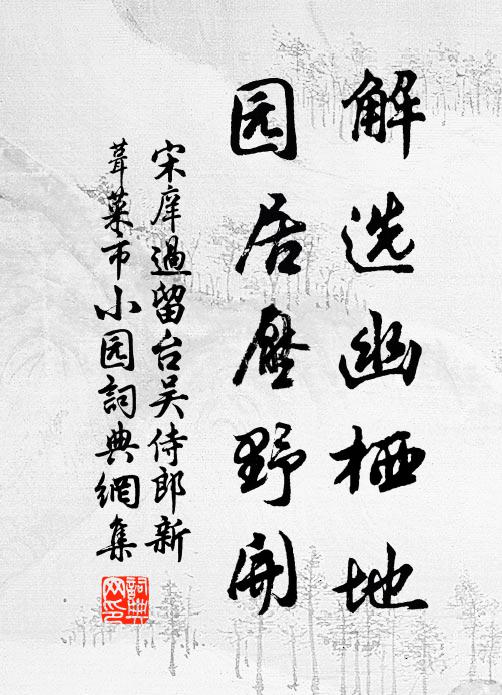 解选幽栖地
园居压野开
宋庠過留台吴侍郎新
葺菜市小园詞典網集